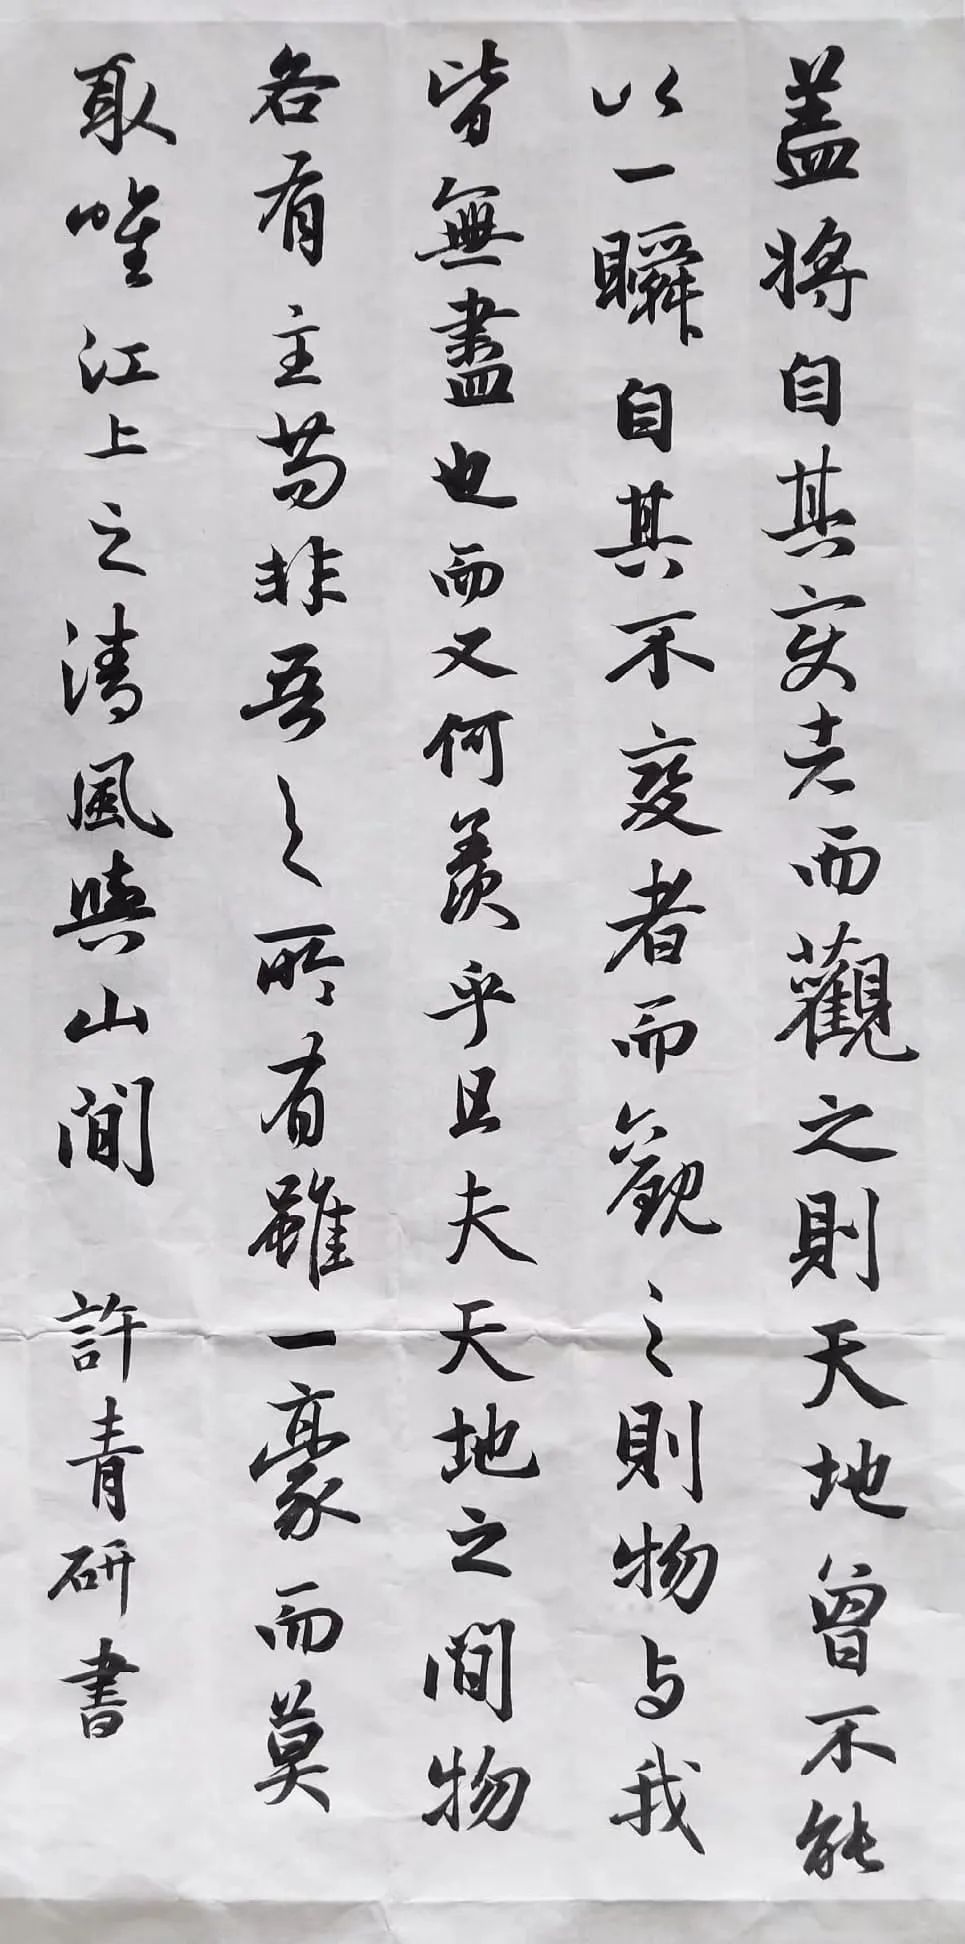 蓋將自其变者而觀之則天地曾不能
以一瞬自其不變者而觀之則物与我
皆無盡也而又何羨乎且夫天地之間物
各有主苟非吾之所有雖一豪而莫
取唯江上之清風與山間
許青研書